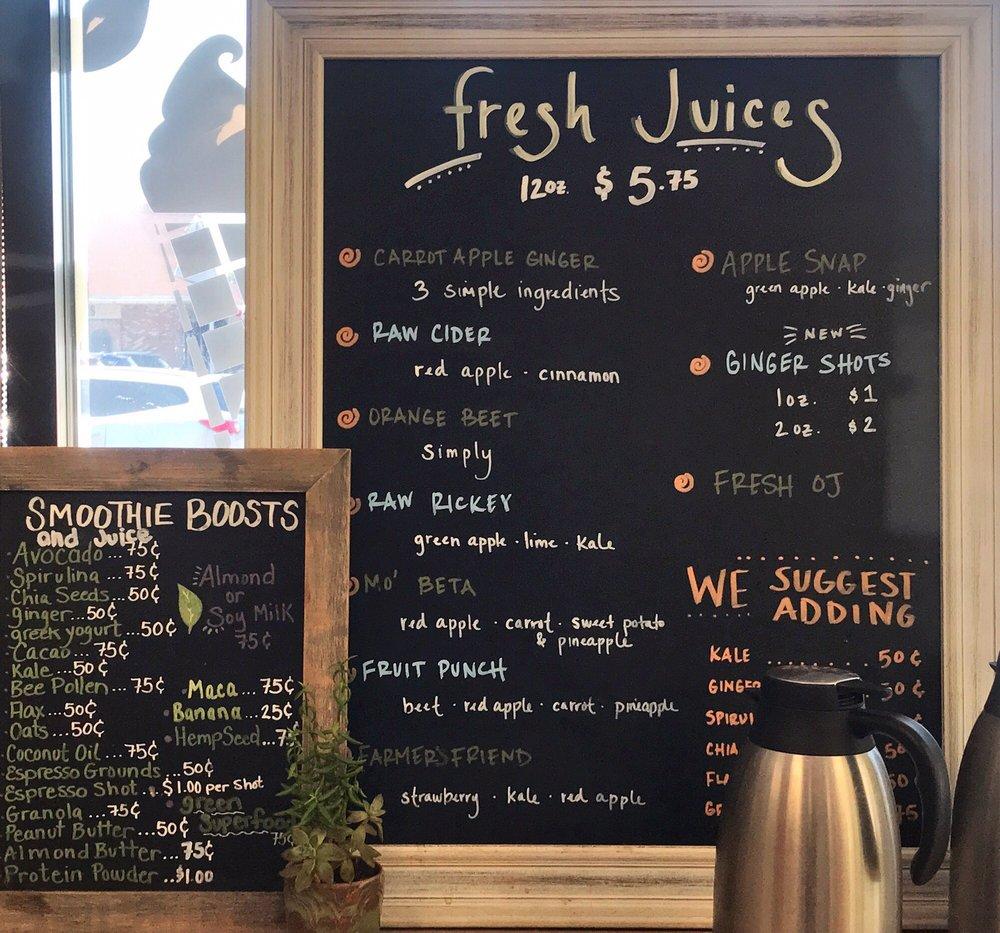 fresh Juices
12oz. $5.75
CARROT APPLE GINGER
3 simple ingredients
RAW CIDER
red apple · cinnamon
ORANGE BEET
simply
RAW RICKEY
green apple · lime · kale
MO' BETA
red apple · carrot · sweet potato
& pineapple
FRUIT PUNCH
beet · red apple · carrot · pineapple
FARMER'S FRIEND
strawberry · kale · red apple
APPLE SNAP
green apple · kale · ginger
NEW
GINGER SHOTS
1oz. $1
2oz. $2
FRESH OJ
WE SUGGEST
ADDING
KALE ........ 50¢
GINGER 50¢
CHIA
SMOOTHIE BOOSTS
and Juice
Avocado...75¢
Spirulina ...75¢
Chia Seeds..50¢
ginger..50¢
greek yogurt...50¢
Cacao...75¢
Kale...50¢
Bee Pollen...75¢
Flax...50¢
Oats...50¢
Coconut Oil...75¢
Espresso Grounds ..50¢
Espresso Shot..$1.00 per Shot
Granola...75¢
Peanut Butter...50¢
Almond Butter...75¢
Protein Powder..$1.00
Almond
or
Soy Milk
75¢
Maca...75¢
Banana...25¢
Hemp Seed...
green
75¢